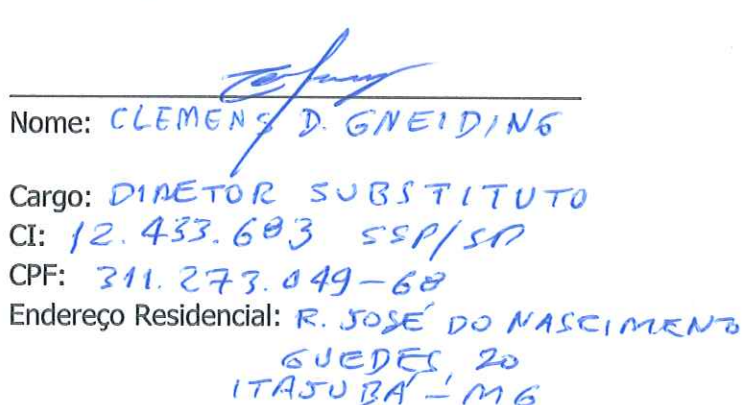 Nome: CLEMENS D. GNEIDING
Cargo: DIRETOR SUBSTITUTO
CI: 12.433.683 SSP/SP
CPF: 311.273.049-68
Endereço Residencial: R. JOSÉ DO NASCIMENTO
GUEDES, 20
ITAJUBÁ - MG